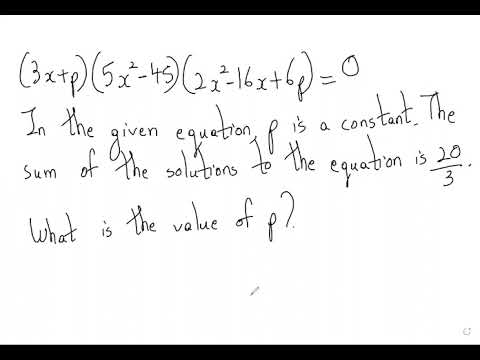 (3x+p)(5x²-45)(2x²-16x+6p)=0
In the given equation, p is a constant. The
sum of the solutions to the equation is 20/3.
What is the value of p?